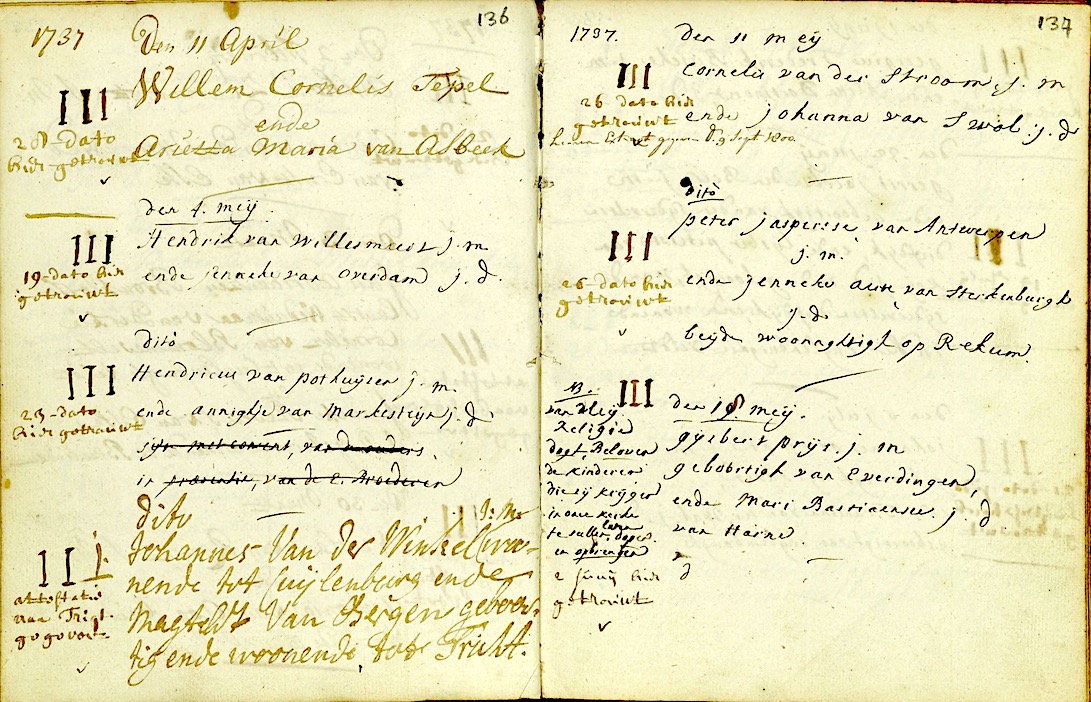 136
1737
Den 11 April
Willem Cornelis Tepel
ende
Arietta Maria van Asbeek
III
28 dato
hier getrouwt
den 4. meij.
Hendrik van Willesmeert j. m
ende jenneke van Overdam j. d.
III
19 dato hier
getrouwt
dito
Hendricus van pothuijsen j. m.
ende annighje van Markesteijn j. d
sijn met consent, van de ouders.
in præsentie, van de E. Broederen
III
23 dato
hier getrouwt
dito
J: M:
Johannes Van der Winkel woo-
nende tot Cuijlenburg ende
Magteldt Van Bergen geboor-
tig ende woonende tot Tricht.
III
attestatie
naa Trigt
gegeven
137
1737.
den 11 meij
Cornelis van der Stroom, j. m
ende johanna van Swol. j. d
III
26 dato hier
getrouwt
hiervan Extract gegeven d. 9 Sept 1800.
dito
peter jasperse van Antwerpen
j. m.
ende jenneke van Sterkenburgh
j. d.
beijde woonaghtigh op Rekum.
III
26 dato hier
getrouwt
den 18 meij.
gijsbert prijs. j. m
geboortigh van Everdingen,
ende Mari Bastiaense. j. d
van
III
NB.
Religie
dogt, Beloven
de kinderen
die sij krijgen
in onse kerke
te sullen laten dopen
en opbrengen
2 junij hier
getrouwt